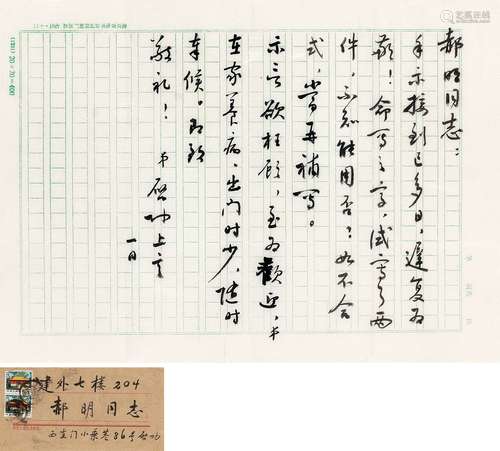 郝明同志：
手示接到已多日，遲复为
歉！命写之字，试寫了两
件，不知能用否？如不合
式，当再补写。
示言欲枉顾，至为歡迎，弟
在家养病，出门时少，随时
奉候。即致
敬礼！弟 启功上言
一日
建外七楼204
郝明同志
西直门小乘巷86号启功